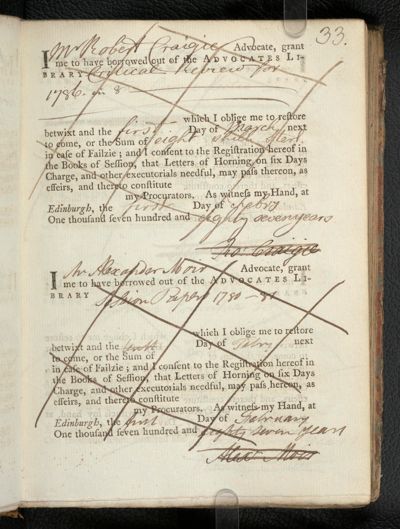 33.
I Mr Robert Craigie Advocate, grant
me to have borrowed out of the ADVOCATES LI-
BRARY Critical Review for
1786. in 8
which I oblige me to restore
betwixt and the first Day of March next
to come, or the Sum of eight Sterl
in case of Failzie; and I consent to the Registration hereof in
the Books of Session, that Letters of Horning on six Days
Charge, and other executorials needful, may pass thereon, as
effeirs, and thereto constitute
my Procurators. As witness my Hand, at
Edinburgh, the first Day of Febry
One thousand seven hundred and eighty seven years
Ro. Craigie
I Mr Alexander Moir Advocate, grant
me to have borrowed out of the ADVOCATES LI-
BRARY Session Papers 1780-81
which I oblige me to restore
betwixt and the tenth Day of Febry next
to come, or the Sum of
in case of Failzie; and I consent to the Registration hereof in
the Books of Session, that Letters of Horning on six Days
Charge, and other executorials needful, may pass thereon, as
effeirs, and thereto constitute
my Procurators. As witness my Hand, at
Edinburgh, the first Day of February
One thousand seven hundred and eighty seven years
Alex Moir